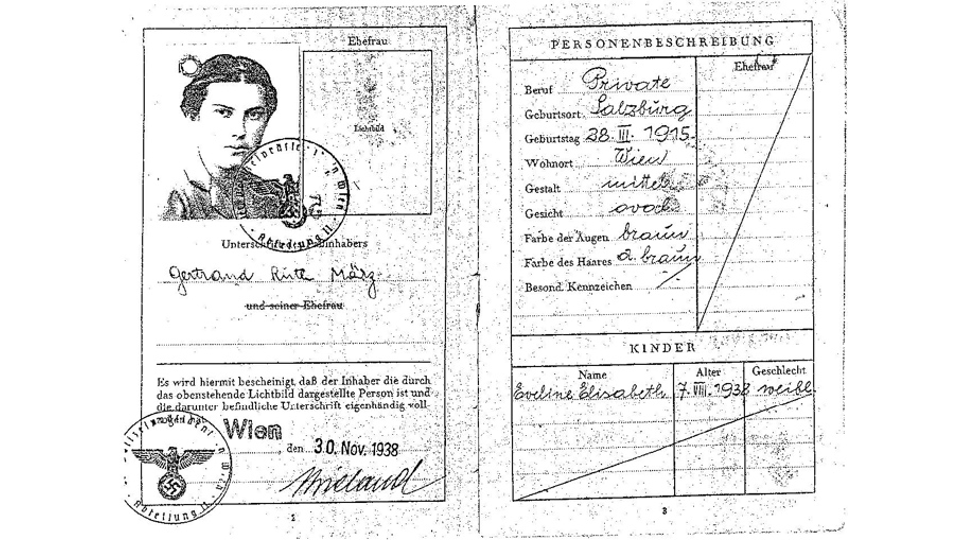 Ehefrau
Lichtbild
Unterschrift des Paßinhabers
Gertraud Ruth März
und seiner Ehefrau
Es wird hiermit bescheinigt, daß der Inhaber die durch
das obenstehende Lichtbild dargestellte Person ist und
die darunter befindliche Unterschrift eigenhändig voll-
Wien
, den 30. Nov. 1938
Wieland
in Wien
Abteilung II
2
PERSONENBESCHREIBUNG
Ehefrau
Beruf Private
Geburtsort Salzburg
Geburtstag 28. III. 1915.
Wohnort Wien
Gestalt mittel
Gesicht oval
Farbe der Augen braun
Farbe des Haares d. braun
Besond. Kennzeichen
KINDER
Name Alter Geschlecht
Eveline Elisabeth 7. VIII. 1938 weibl.
3